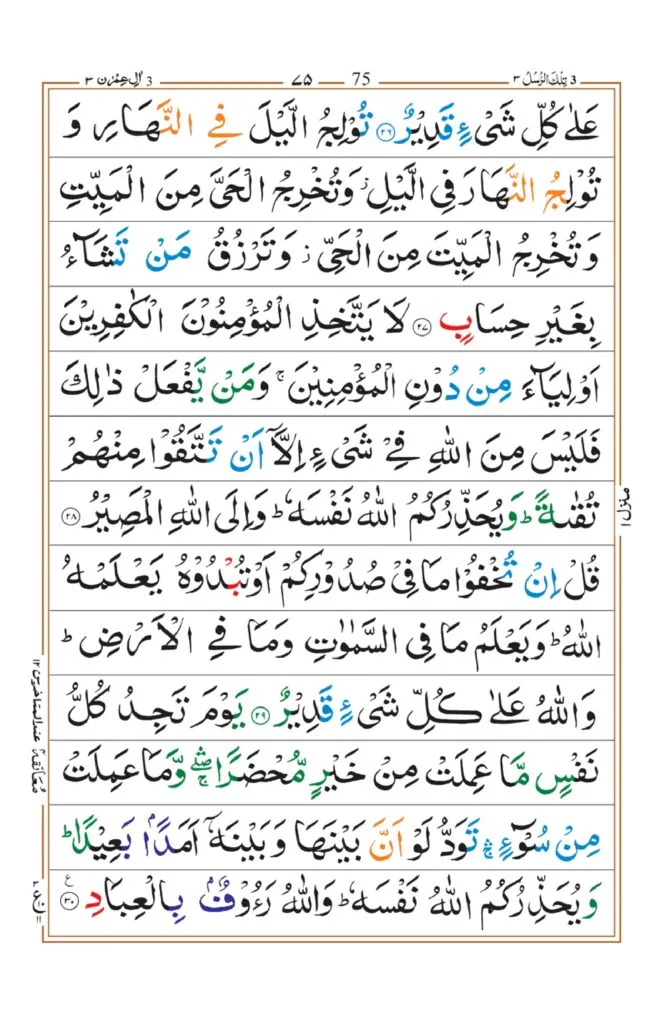 3 تِلْكَ الرُّسُلُ ٣ 75 ٧٥ 3 اٰلِ عِمْرٰن ٣
عَلٰى كُلِّ شَىْءٍ قَدِيْرٌ ۝٢٦ تُوْلِجُ الَّيْلَ فِى النَّهَارِ وَ
تُوْلِجُ النَّهَارَ فِى الَّيْلِ ۡ وَتُخْرِجُ الْحَىَّ مِنَ الْمَيِّتِ
وَتُخْرِجُ الْمَيِّتَ مِنَ الْحَىِّ ۡ وَتَرْزُقُ مَنْ تَشَآءُ
بِغَيْرِ حِسَابٍ ۝٢٧ لَا يَتَّخِذِ الْمُؤْمِنُوْنَ الْكٰفِرِيْنَ
اَوْلِيَآءَ مِنْ دُوْنِ الْمُؤْمِنِيْنَ ۚ وَمَنْ يَّفْعَلْ ذٰلِكَ
فَلَيْسَ مِنَ اللّٰهِ فِىْ شَىْءٍ اِلَّاۤ اَنْ تَتَّقُوْا مِنْهُمْ
تُقٰىةً ؕ وَيُحَذِّرُكُمُ اللّٰهُ نَفْسَهٗ ؕ وَاِلَى اللّٰهِ الْمَصِيْرُ ۝٢٨
قُلْ اِنْ تُخْفُوْا مَا فِىْ صُدُوْرِكُمْ اَوْ تُبْدُوْهُ يَعْلَمْهُ
اللّٰهُ ؕ وَيَعْلَمُ مَا فِى السَّمٰوٰتِ وَمَا فِى الْاَرْضِ ؕ
وَاللّٰهُ عَلٰى كُلِّ شَىْءٍ قَدِيْرٌ ۝٢٩ يَوْمَ تَجِدُ كُلُّ
نَفْسٍ مَّا عَمِلَتْ مِنْ خَيْرٍ مُّحْضَرًا ۛۖۚ وَّمَا عَمِلَتْ
مِنْ سُوْٓءٍ ۛۚ تَوَدُّ لَوْ اَنَّ بَيْنَهَا وَبَيْنَهٗۤ اَمَدًاۢ بَعِيْدًا ؕ
وَيُحَذِّرُكُمُ اللّٰهُ نَفْسَهٗ ؕ وَاللّٰهُ رَءُوْفٌۢ بِالْعِبَادِ ۝٣٠
منزل ١
مُعَانَقَة ٣ عند المتأخرين ١٢